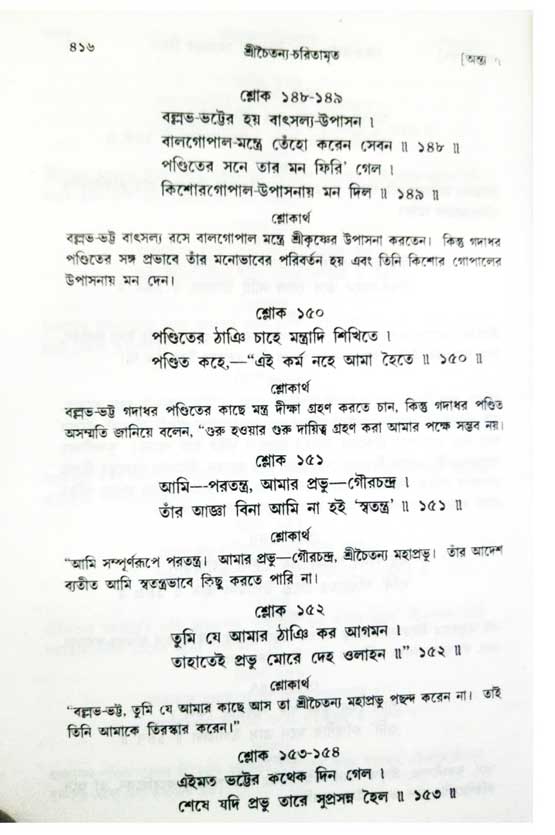 ৪১৬
শ্রীচৈতন্য-চরিতামৃত
[অন্ত্য ৭
শ্লোক ১৪৮-১৪৯
বল্লভ-ভট্টের হয় বাৎসল্য-উপাসন ।
বালগোপাল-মন্ত্রে তেঁহো করেন সেবন ॥ ১৪৮ ॥
পণ্ডিতের সনে তার মন ফিরি' গেল ।
কিশোরগোপাল-উপাসনায় মন দিল ॥ ১৪৯ ॥
শ্লোকার্থ
বল্লভ-ভট্ট বাৎসল্য রসে বালগোপাল মন্ত্রে শ্রীকৃষ্ণের উপাসনা করতেন। কিন্তু গদাধর
পণ্ডিতের সঙ্গ প্রভাবে তাঁর মনোভাবের পরিবর্তন হয় এবং তিনি কিশোর গোপালের
উপাসনায় মন দেন।
শ্লোক ১৫০
পণ্ডিতের ঠাঞি চাহে মন্ত্রাদি শিখিতে ।
পণ্ডিত কহে,—“এই কর্ম নহে আমা হৈতে ॥ ১৫০ ॥
শ্লোকার্থ
বল্লভ-ভট্ট গদাধর পণ্ডিতের কাছে মন্ত্র দীক্ষা গ্রহণ করতে চান, কিন্তু গদাধর পণ্ডিত
অসম্মতি জানিয়ে বলেন, “গুরু হওয়ার গুরু দায়িত্ব গ্রহণ করা আমার পক্ষে সম্ভব নয়।
শ্লোক ১৫১
আমি—পরতন্ত্র, আমার প্রভু—গৌরচন্দ্র ।
তাঁর আজ্ঞা বিনা আমি না হই ‘স্বতন্ত্র’ ॥ ১৫১ ॥
শ্লোকার্থ
“আমি সম্পূর্ণরূপে পরতন্ত্র। আমার প্রভু—গৌরচন্দ্র, শ্রীচৈতন্য মহাপ্রভু। তাঁর আদেশ
ব্যতীত আমি স্বতন্ত্রভাবে কিছু করতে পারি না।
শ্লোক ১৫২
তুমি যে আমার ঠাঞি কর আগমন ।
তাহাতেই প্রভু মোরে দেহ ওলাহন ॥” ১৫২ ॥
শ্লোকার্থ
“বল্লভ-ভট্ট, তুমি যে আমার কাছে আস তা শ্রীচৈতন্য মহাপ্রভু পছন্দ করেন না। তাই
তিনি আমাকে তিরস্কার করেন।”
শ্লোক ১৫৩-১৫৪
এইমত ভট্টের কথেক দিন গেল ।
শেষে যদি প্রভু তারে সুপ্রসন্ন হৈল ॥ ১৫৩ ॥